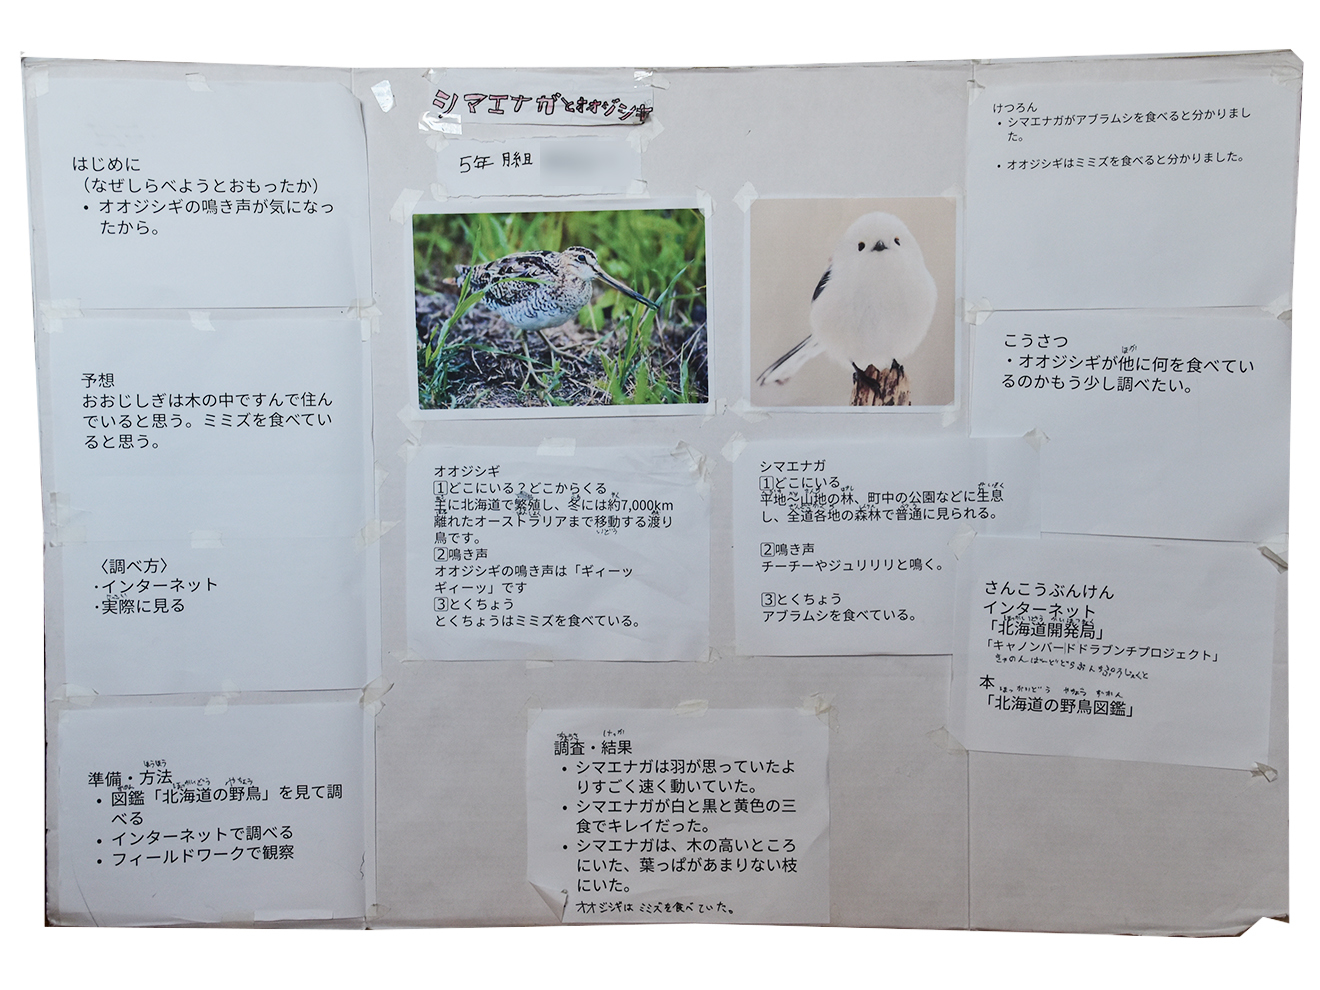 シマエナガとオオジシギ
5年 月組
はじめに
（なぜしらべようとおもったか）
• オオジシギの鳴き声が気になっ
たから。
予想
おおじしぎは木の中ですんで住ん
でいると思う。ミミズを食べてい
ると思う。
〈調べ方〉
・インターネット
じっさい
・実際に見る
ほうほう
準備・方法
ずかん ほっかいどう やちょう
• 図鑑「北海道の野鳥」を見て調
べる
• インターネットで調べる
• フィールドワークで観察
オオジシギ
1どこにいる？どこからくる
主に北海道で繁殖し、冬には約7,000km
離れたオーストラリアまで移動する渡り
いどう
鳥です。
2鳴き声
オオジシギの鳴き声は「ギィーッ
ギィーッ」です
3とくちょう
とくちょうはミミズを食べている。
シマエナガ
1どこにいる
平地～山地の林、町中の公園などに生息
し、全道各地の森林で普通に見られる。
2鳴き声
チーチーやジュリリリと鳴く。
3とくちょう
アブラムシを食べている。
ちょうさ けっか
調査・結果
• シマエナガは羽が思っていたよ
りすごく速く動いていた。
• シマエナガが白と黒と黄色の三
食でキレイだった。
• シマエナガは、木の高いところ
にいた、葉っぱがあまりない枝
にいた。
オオジシギは ミミズを食べていた。
けつろん
• シマエナガがアブラムシを食べると分かりまし
た。
• オオジシギはミミズを食べると分かりました。
こうさつ
ほか
・オオジシギが他に何を食べてい
るのかもう少し調べたい。
さんこうぶんけん
インターネット
ほっかいどう かいはつきょく
「北海道開発局」
「キャノンバードドラブンチプロジェクト」
本
ほっかいどう やちょう ずかん
「北海道の野鳥図鑑」